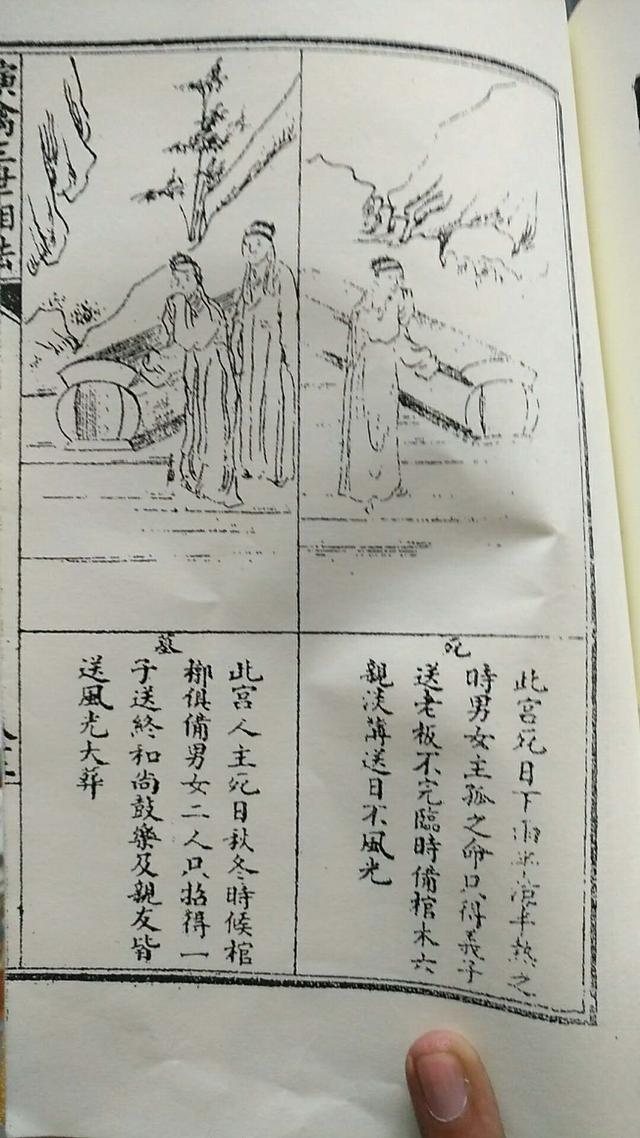 死
此宮死日下雨半涼半熱之
時男女主孤之命只得義子
送老板不完臨時備棺木六
親淡薄送日不風光
墓
此宮人主死日秋冬時候棺
槨俱備男女二人只招得一
子送終和尚鼓樂及親友皆
送風光大葬
演禽三世相法